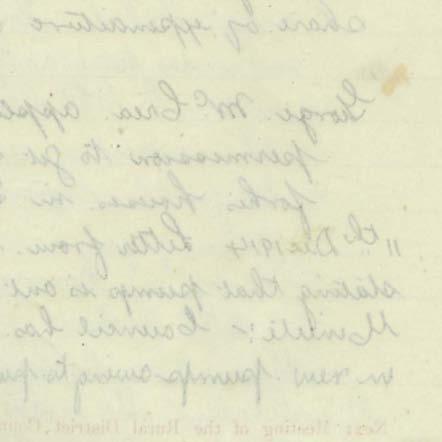 share by expenditure
George McCrea appe
permission to ge
for his houses in
11th Dec 1914 Letter from
stating that pump is out
Minute:- Council has
in new pump owing to pu
Next Meeting of the Rural District Coun